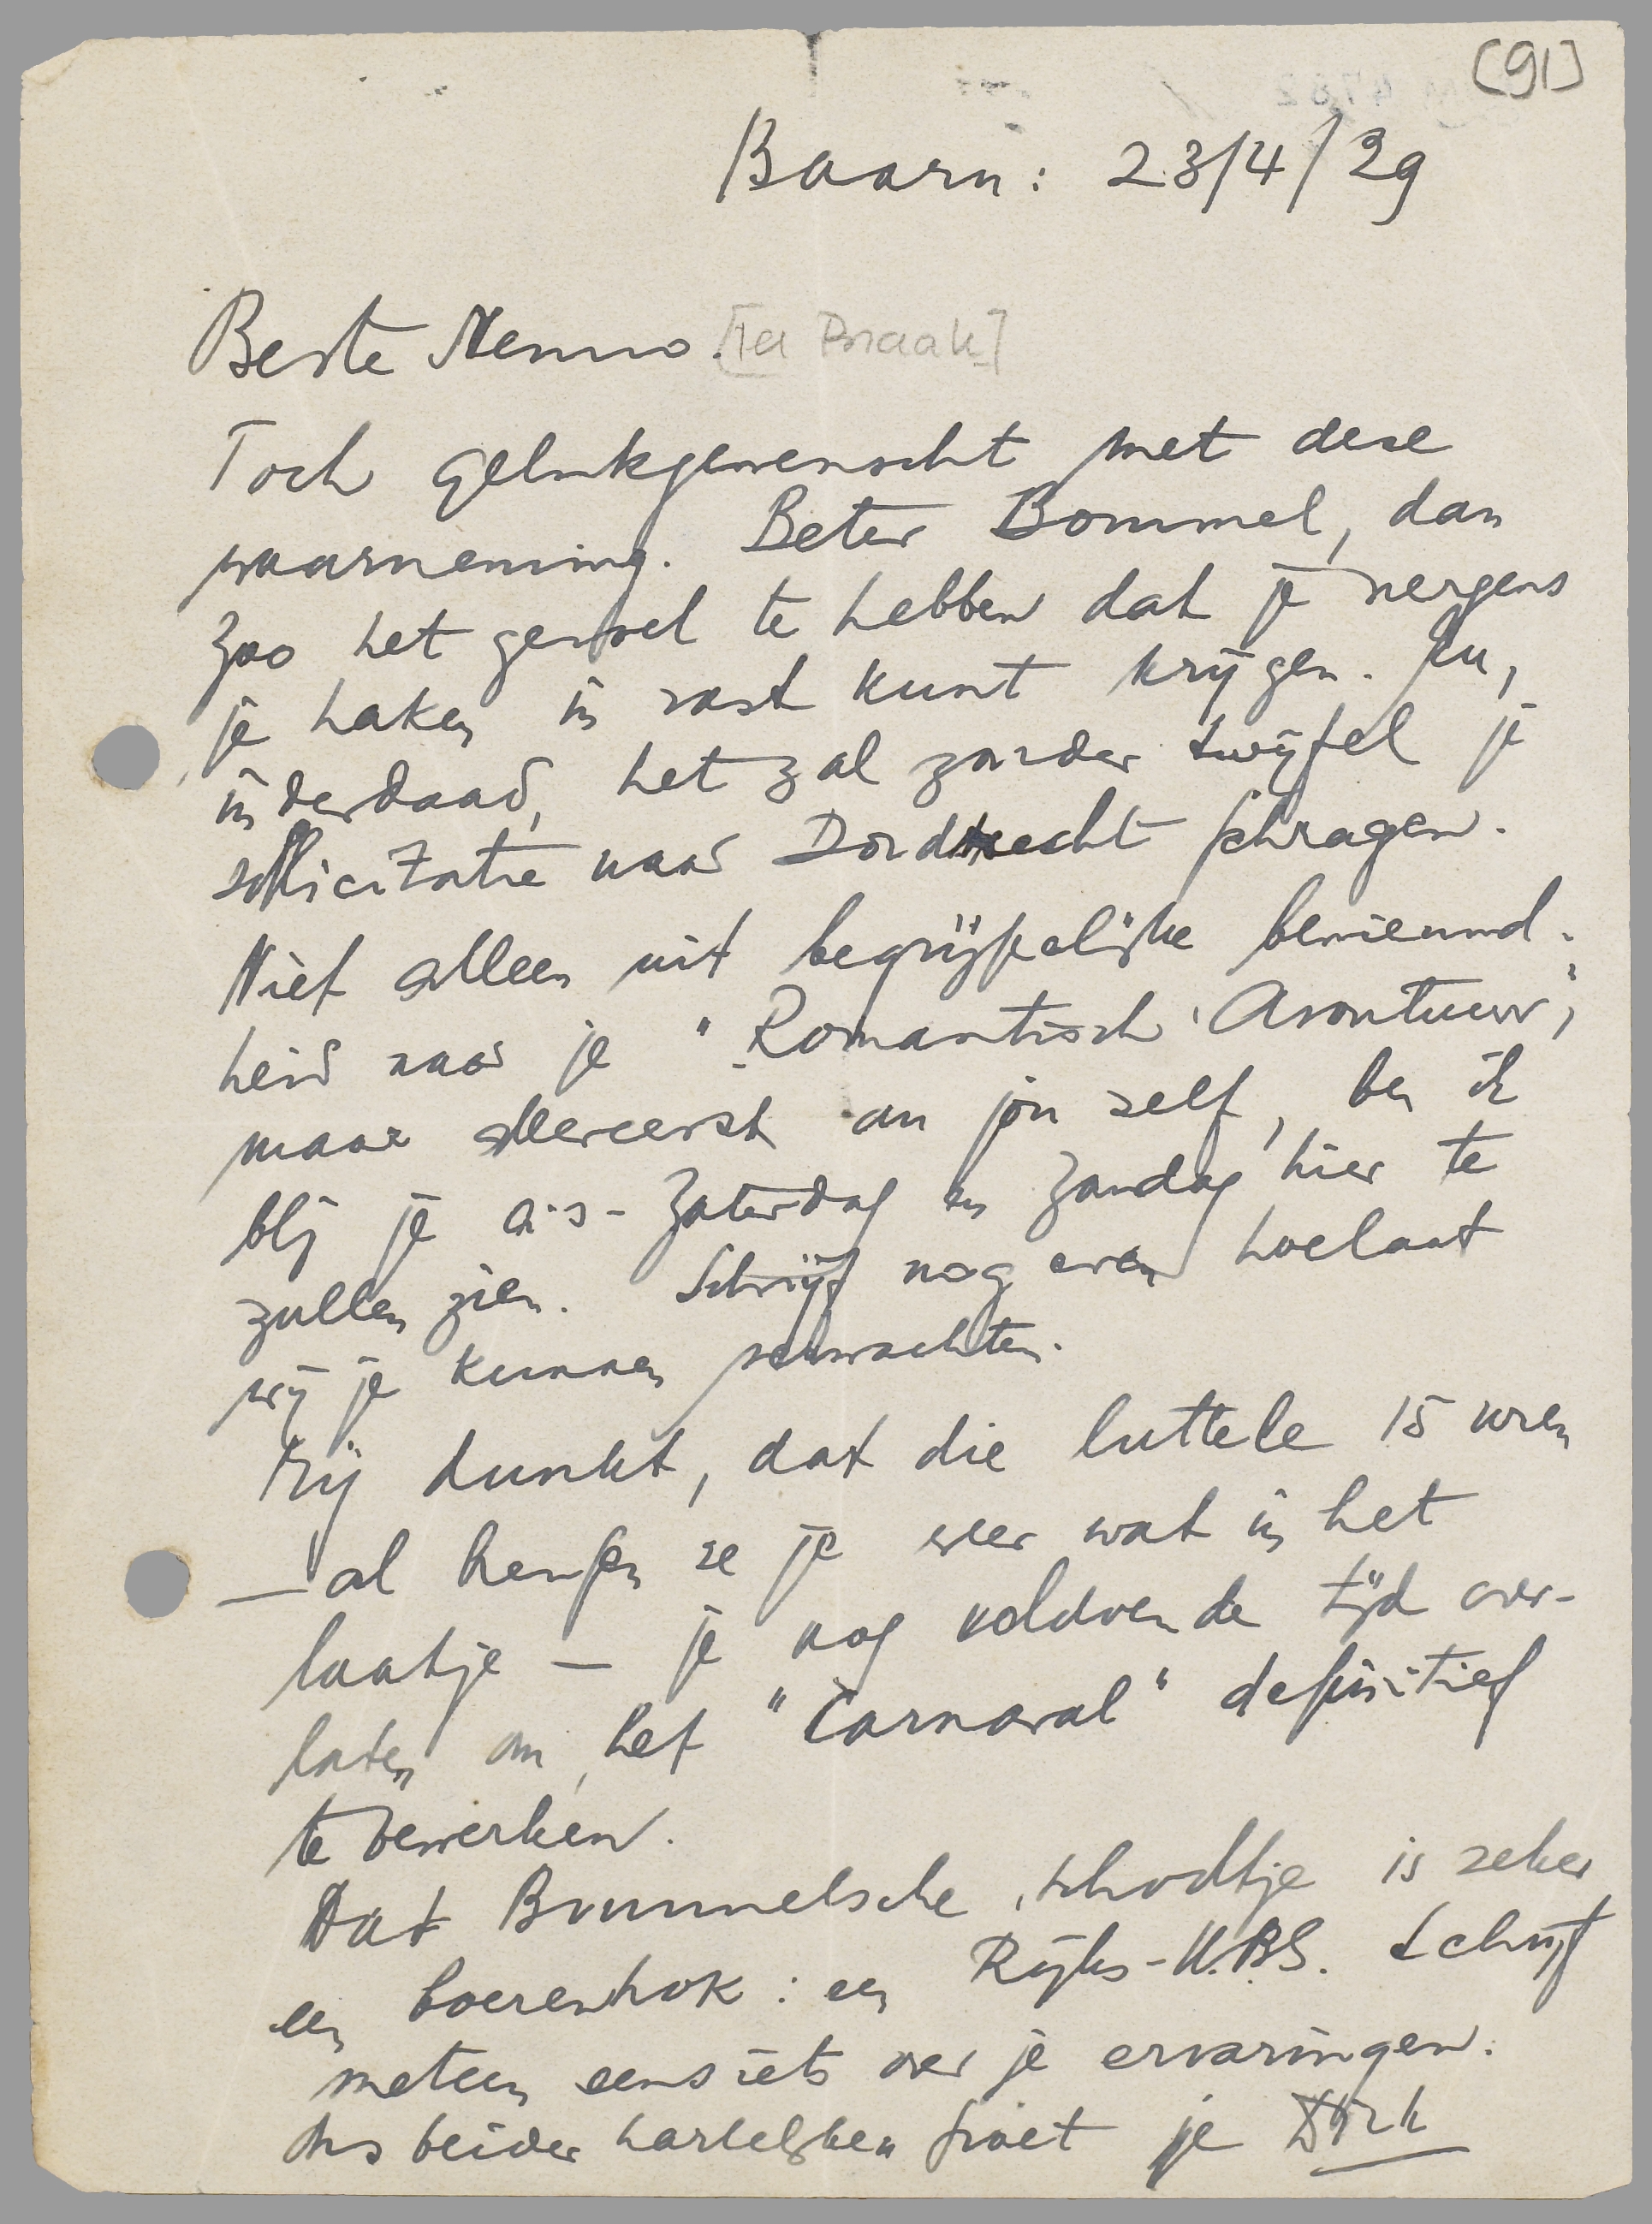 [91]
Baarn: 23/4/29
Beste Menno. [ter Braak]
Toch gelukgewenscht met deze
waarneming. Beter Bommel, dan
zoo het gevoel te hebben dat je nergens
je haken in vast kunt krijgen. En,
inderdaad, het zal zonder twijfel je
sollicitatie naar Dordrecht schragen.
Niet alleen uit begrijpelijke benieuwd-
heid naar je "Romantisch Avontuur",
maar allereerst om jou zelf, ben ik
blij je a.s. Zaterdag en Zondag hier te
zullen zien. Schrijf nog even hoelaat
wij je kunnen verwachten.
Mij dunkt, dat die luttele 15 uren
— al hengen ze je weer wat in het
laatje — je nog voldoende tijd over-
laten om het "Carnaval" definitief
te bewerken.
Dat Bommelsche schooltje is zeker
een boerenhok: een Rijks-H.B.S. Schrijf
meteen eens iets over je ervaringen.
Ons beider hartelijken groet je Dirk